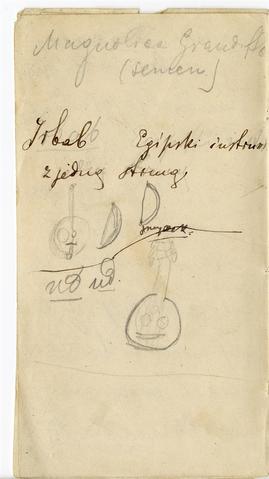 Magnolia Grandiflo
(semen)
Egipski instrum
z jedną struną
ud ud.